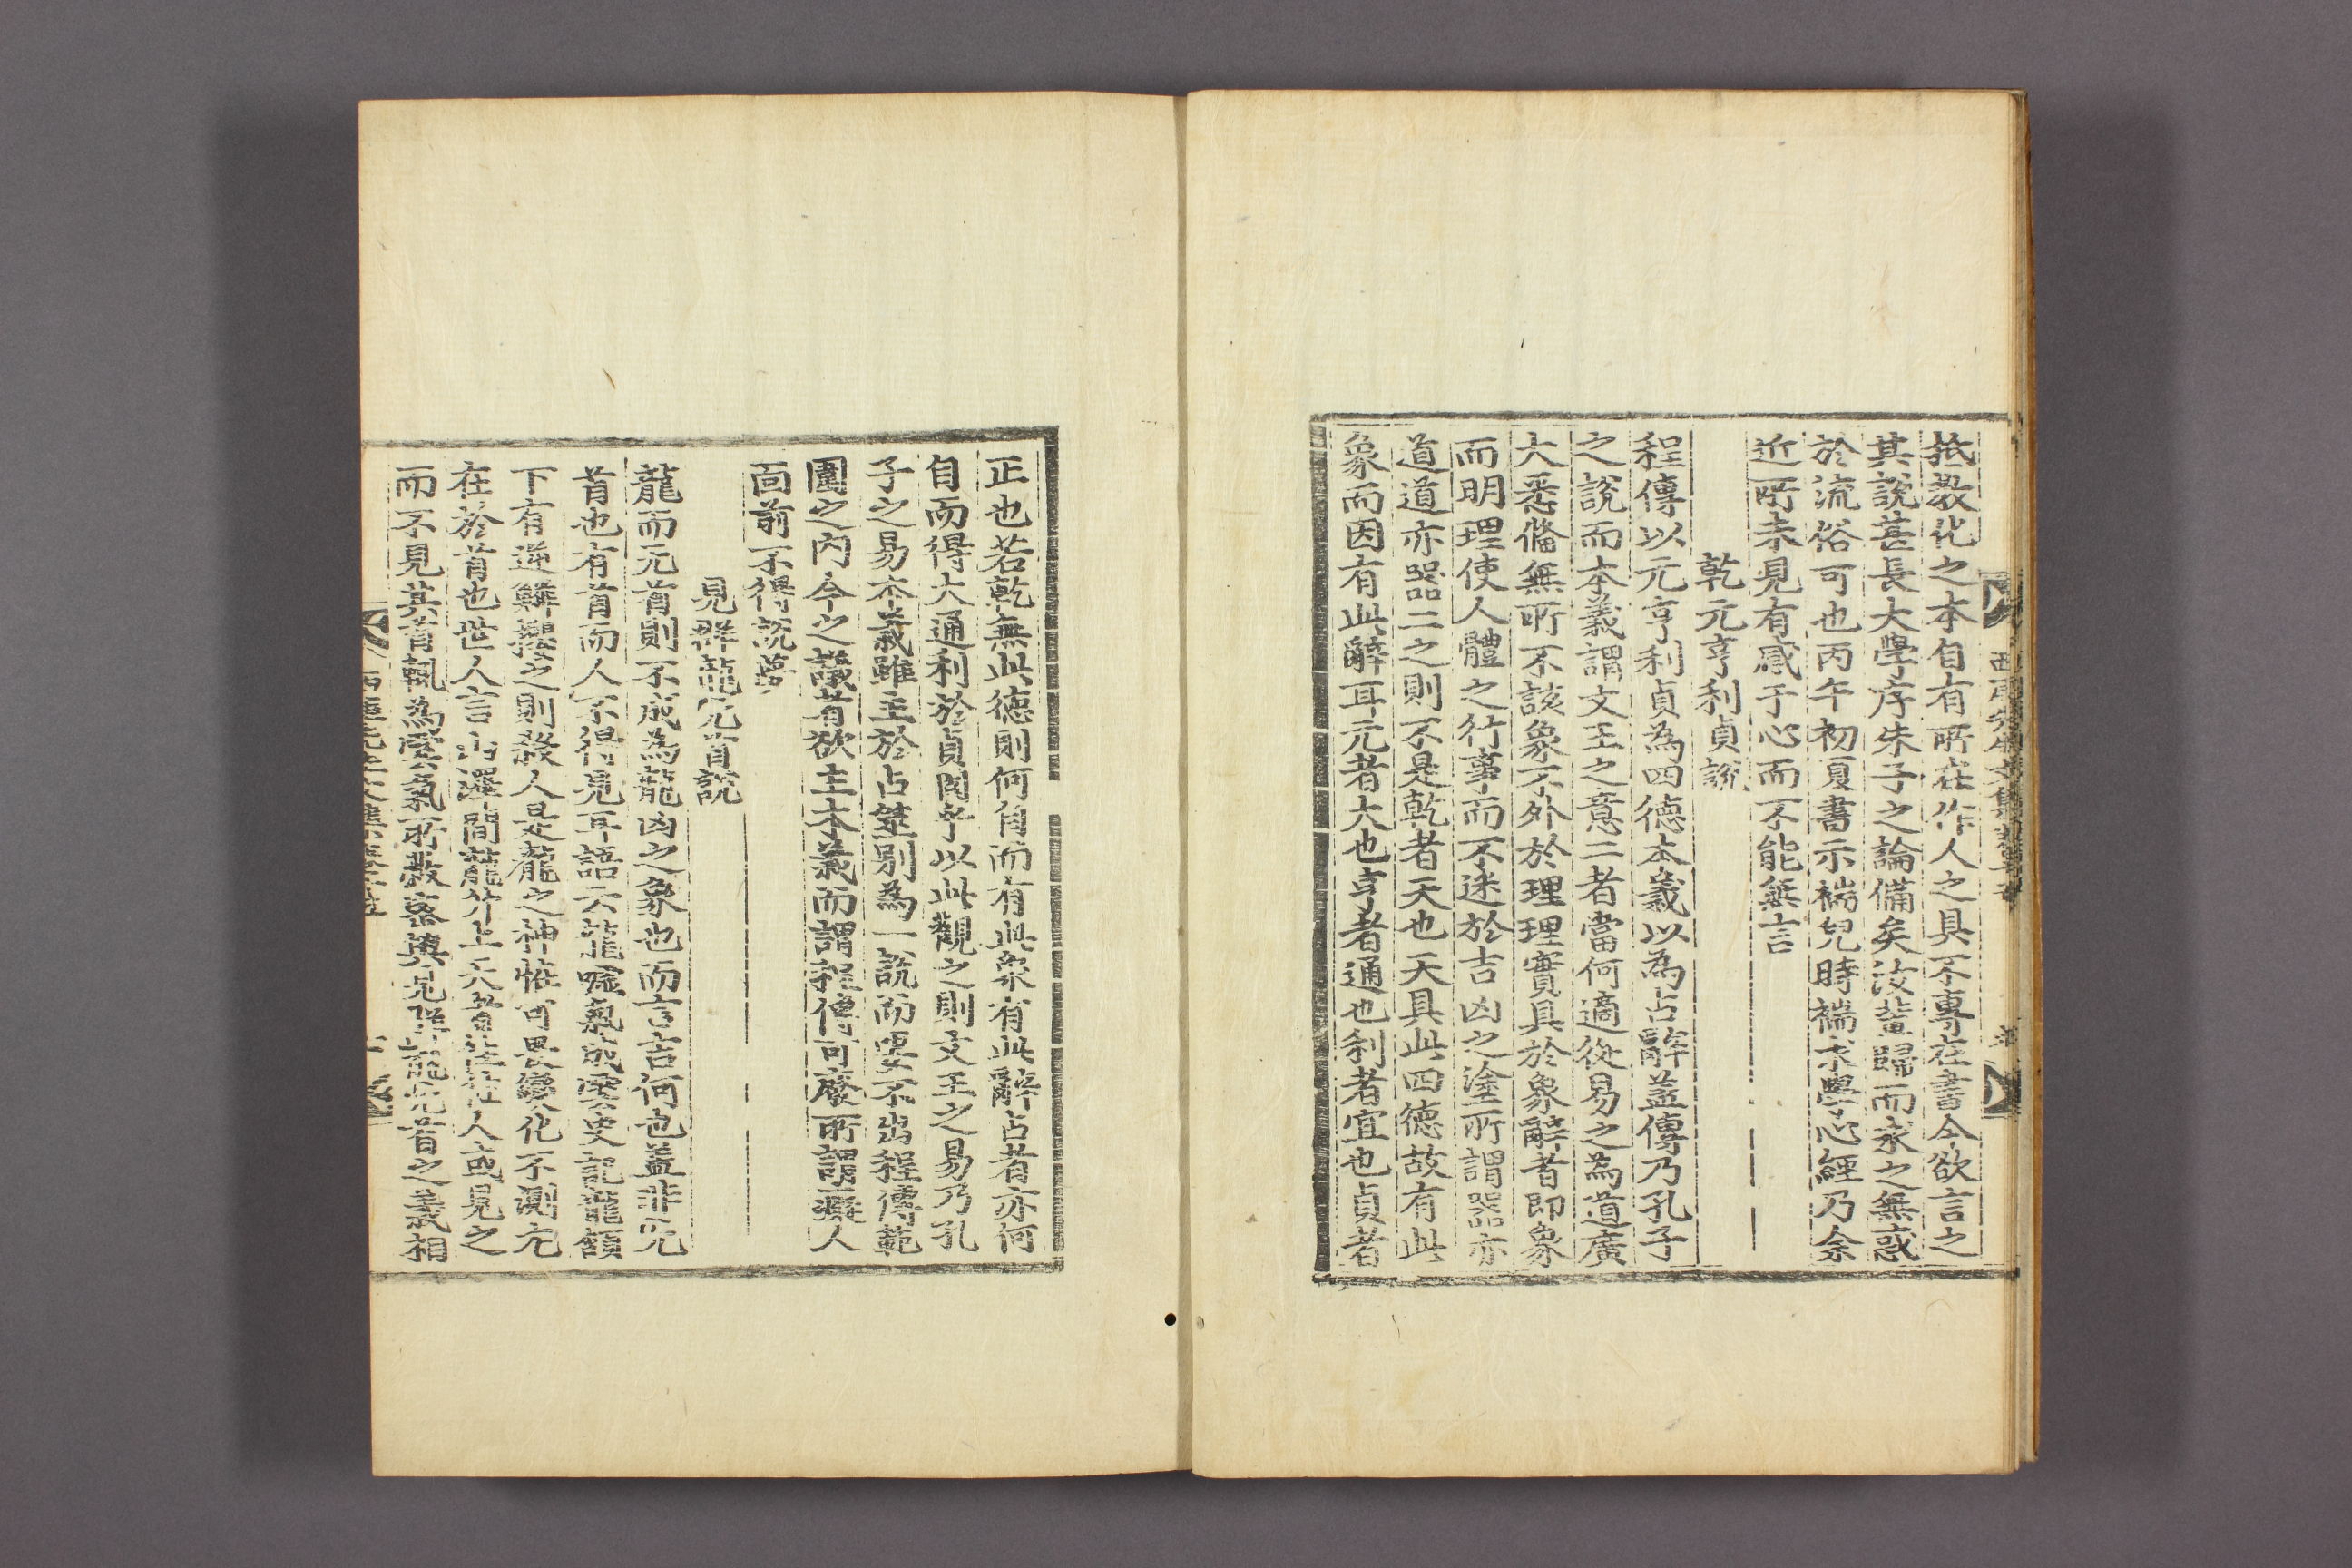 抵敎化之本自有所在作人之具不專在書今欲言之
其說甚長大學序朱子之論備矣汝輩歸而求之無惑
於流俗可也丙午初夏書示褍兒時褍求學心經乃余
近所未見有感于心而不能無言
乾元亨利貞說
程傳以元亨利貞爲四德本義以爲占辭盖傳乃孔子
之說而本義謂文王之意二者當何適從易之爲道廣
大悉備無所不該象不外於理理實具於象辭者即象
而明理使人體之行事而不迷於吉凶之塗所謂器亦
道道亦器二之則不是乾者天也天具此四德故有此
象而因有此辭耳元者大也亨者通也利者宜也貞者
正也若乾無此德則何自而有此象有此辭占者亦何
自而得大通利於貞固乎以此觀之則文王之易乃孔
子之易本義雖主於占筮別爲一說而要不出程傳範
圍之內今之議者欲主本義而謂程傳可廢所謂癡人
面前不得說夢
見群龍无首說
龍而无首則不成爲龍凶之象也而言吉何也盖非无
首也有首而人不得見耳語云龍噓氣成雲史記龍頷
下有逆鱗攖之則殺人是龍之神恠可畏變化不測尤
在於首也世人言山澤間龍升上天者往往人或見之
而不見其首輒爲雲氣所蔽